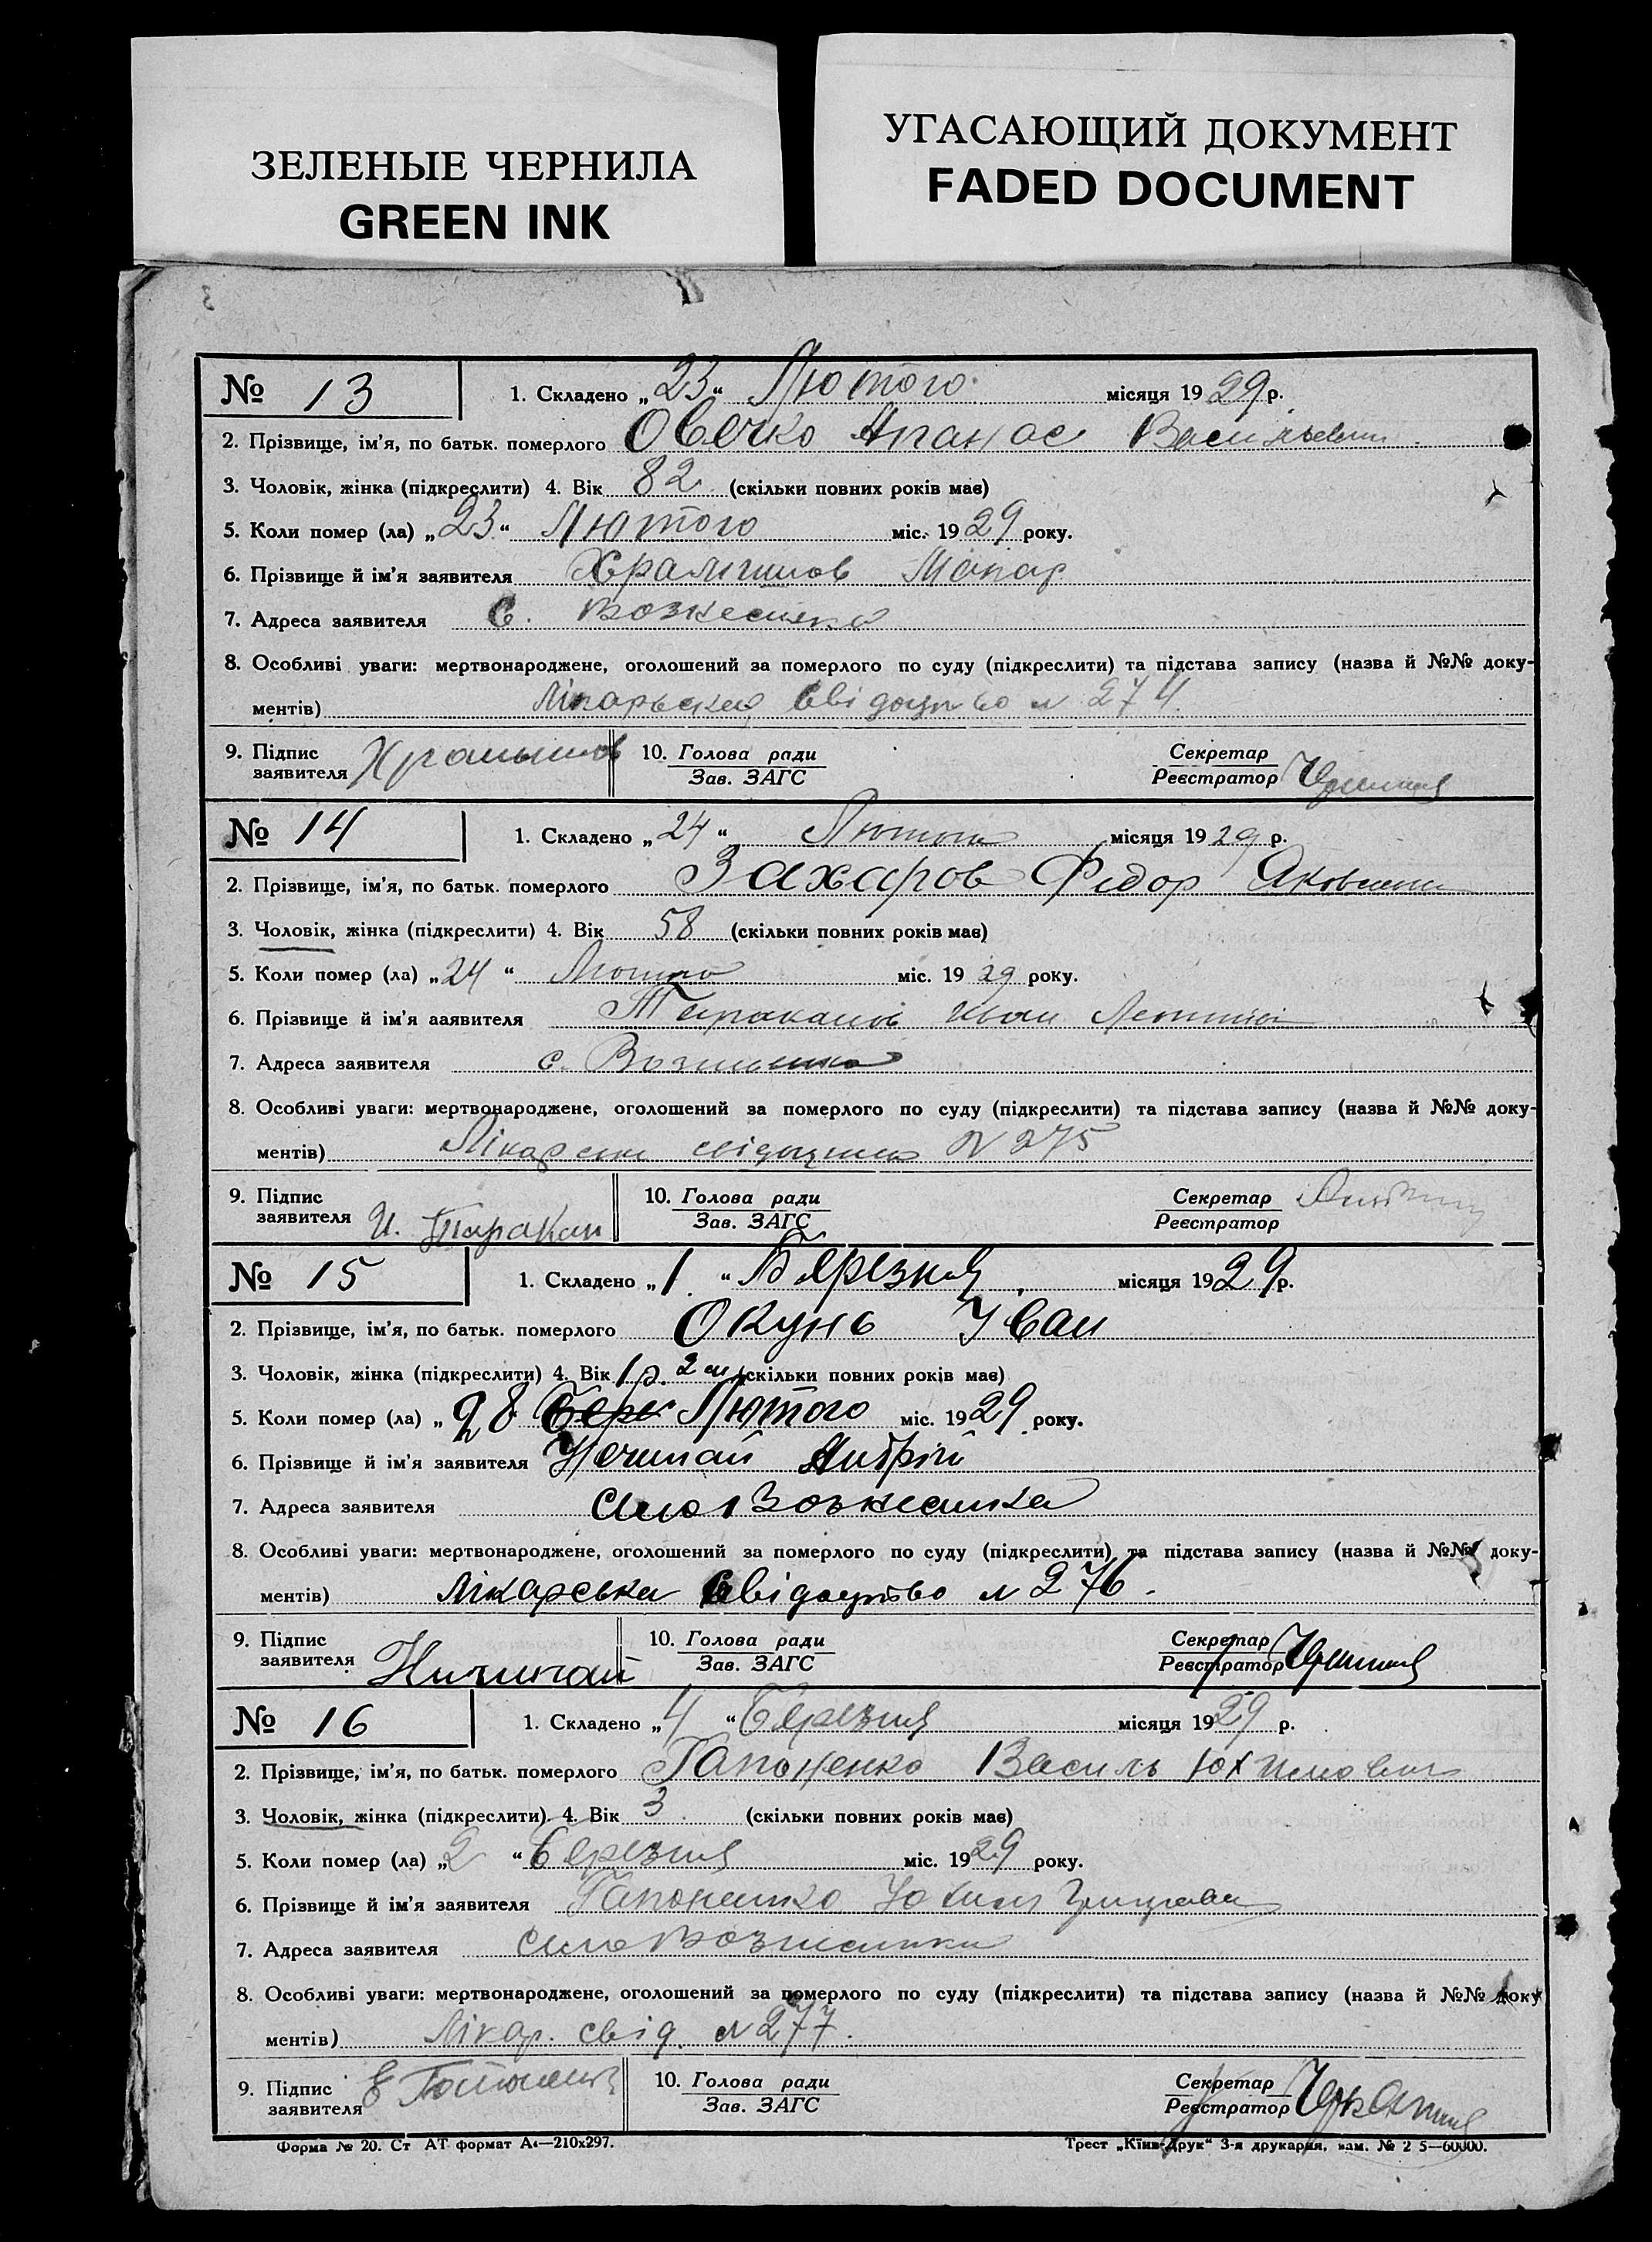 ЗЕЛЕНЫЕ ЧЕРНИЛА
GREEN INK
УГАСАЮЩИЙ ДОКУМЕНТ
FADED DOCUMENT
№ 13 1. Складено „23“ Лютого місяця 1929 р.
2. Прізвище, ім'я, по батьк. померлого Овечко Апанас Васильевич
3. Чоловік, жінка (підкреслити) 4. Вік 82 (скільки повних років має)
5. Коли помер (ла) „23“ Лютого міс. 1929 року.
6. Прізвище й ім'я заявителя Макар
7. Адреса заявителя С. Вознесенка
8. Особливі уваги: мертвонароджене, оголошений за померлого по суду (підкреслити) та підстава запису (назва й №№ доку-
ментів) свідоцтво № 274.
9. Підпис заявителя 10. Голова ради Зав. ЗАГС Секретар Реєстратор
№ 14 1. Складено „24“ Лютого місяця 1929 р.
2. Прізвище, ім'я, по батьк. померлого Захаров Федор Якович
3. Чоловік, жінка (підкреслити) 4. Вік 58 (скільки повних років має)
5. Коли помер (ла) „24“ Лютого міс. 1929 року.
6. Прізвище й ім'я ааявителя Тараканов Иван
7. Адреса заявителя с.
8. Особливі уваги: мертвонароджене, оголошений за померлого по суду (підкреслити) та підстава запису (назва й №№ доку-
ментів) № 275
9. Підпис заявителя И. Таракан 10. Голова ради Зав. ЗАГС Секретар Реєстратор
№ 15 1. Складено „1“ Березня місяця 1929 р.
2. Прізвище, ім'я, по батьк. померлого Окунь Іван
3. Чоловік, жінка (підкреслити) 4. Вік 1 р. 2 м (скільки повних років має)
5. Коли помер (ла) „28 Бере Лютого міс. 1929 року.
6. Прізвище й ім'я заявителя Нечипай Андрій
7. Адреса заявителя Село Вознесенка
8. Особливі уваги: мертвонароджене, оголошений за померлого по суду (підкреслити) та підстава запису (назва й №№ доку-
ментів) Лікарська свідоцтво № 276.
9. Підпис заявителя 10. Голова ради Зав. ЗАГС Секретар Реєстратор
№ 16 1. Складено „4“ Березня місяця 1929 р.
2. Прізвище, ім'я, по батьк. померлого Гапоненко Василь Юхимович
3. Чоловік, жінка (підкреслити) 4. Вік 3 (скільки повних років має)
5. Коли помер (ла) „2“ Березня міс. 1929 року.
6. Прізвище й ім'я заявителя Гапоненко Юхим
7. Адреса заявителя Село
8. Особливі уваги: мертвонароджене, оголошений за померлого по суду (підкреслити) та підстава запису (назва й №№ доку
ментів) Лікар. свід. № 277.
9. Підпис заявителя 10. Голова ради Зав. ЗАГС Секретар Реєстратор
Форма № 20. Ст АТ формат А4—210х297. Трест „Київ-Друк“ 3-я друкарня, зам. № 2 5—60000.